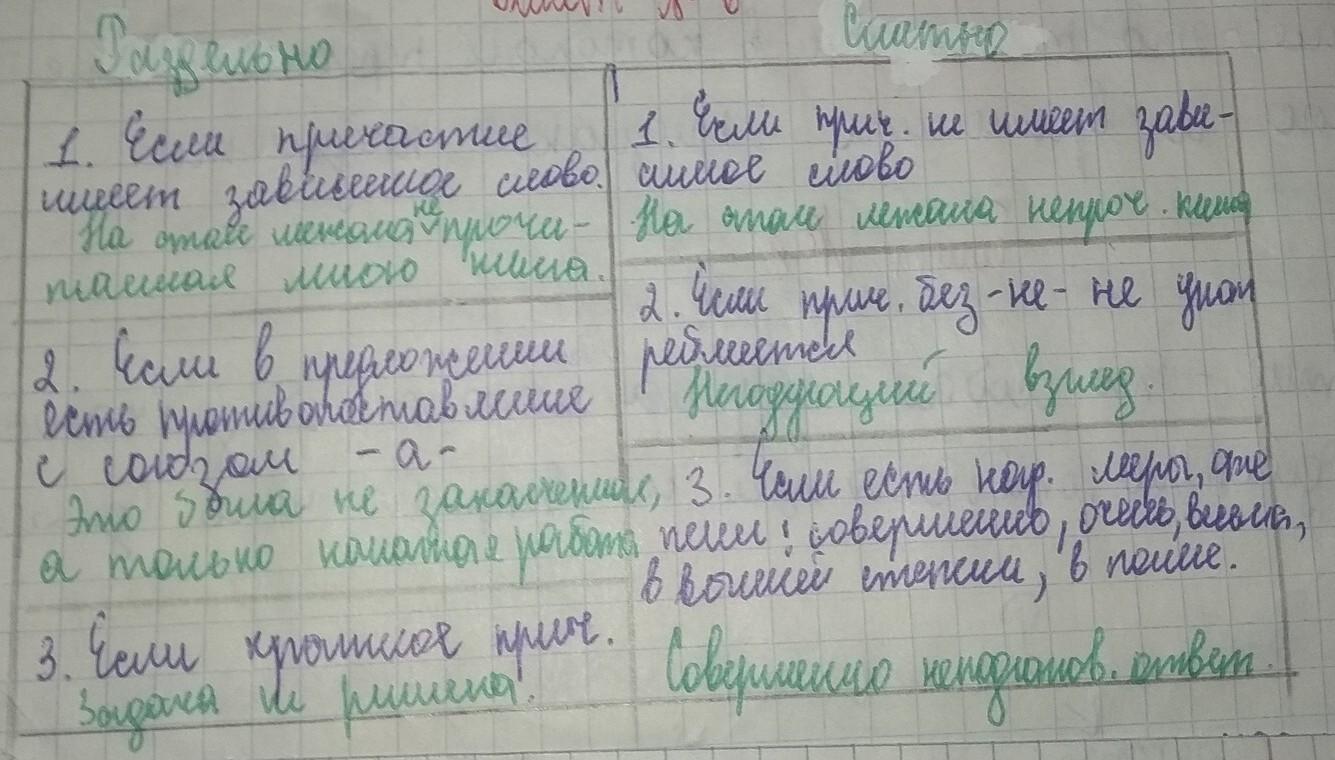 Раздельно
1. Если причастие
имеет зависимое слово.
На столе лежала не прочи-
танная мною книга.
2. Если в предложении
есть противопоставление
с союзом -а-
Это была не законченная,
а только начатая работа
3. Если краткое прич.
Задача не решена.
Слитно
1. Если прич. не имеет зави-
симое слово
На столе лежала непроч. книга
2. Если прич. без -не- не упот
ребляется
Негодующий взгляд.
3. Если есть нар. меры, сте
пени: совершенно, очень, весьма,
в высшей степени, в полне.
Совершенно неподготов. ответ.